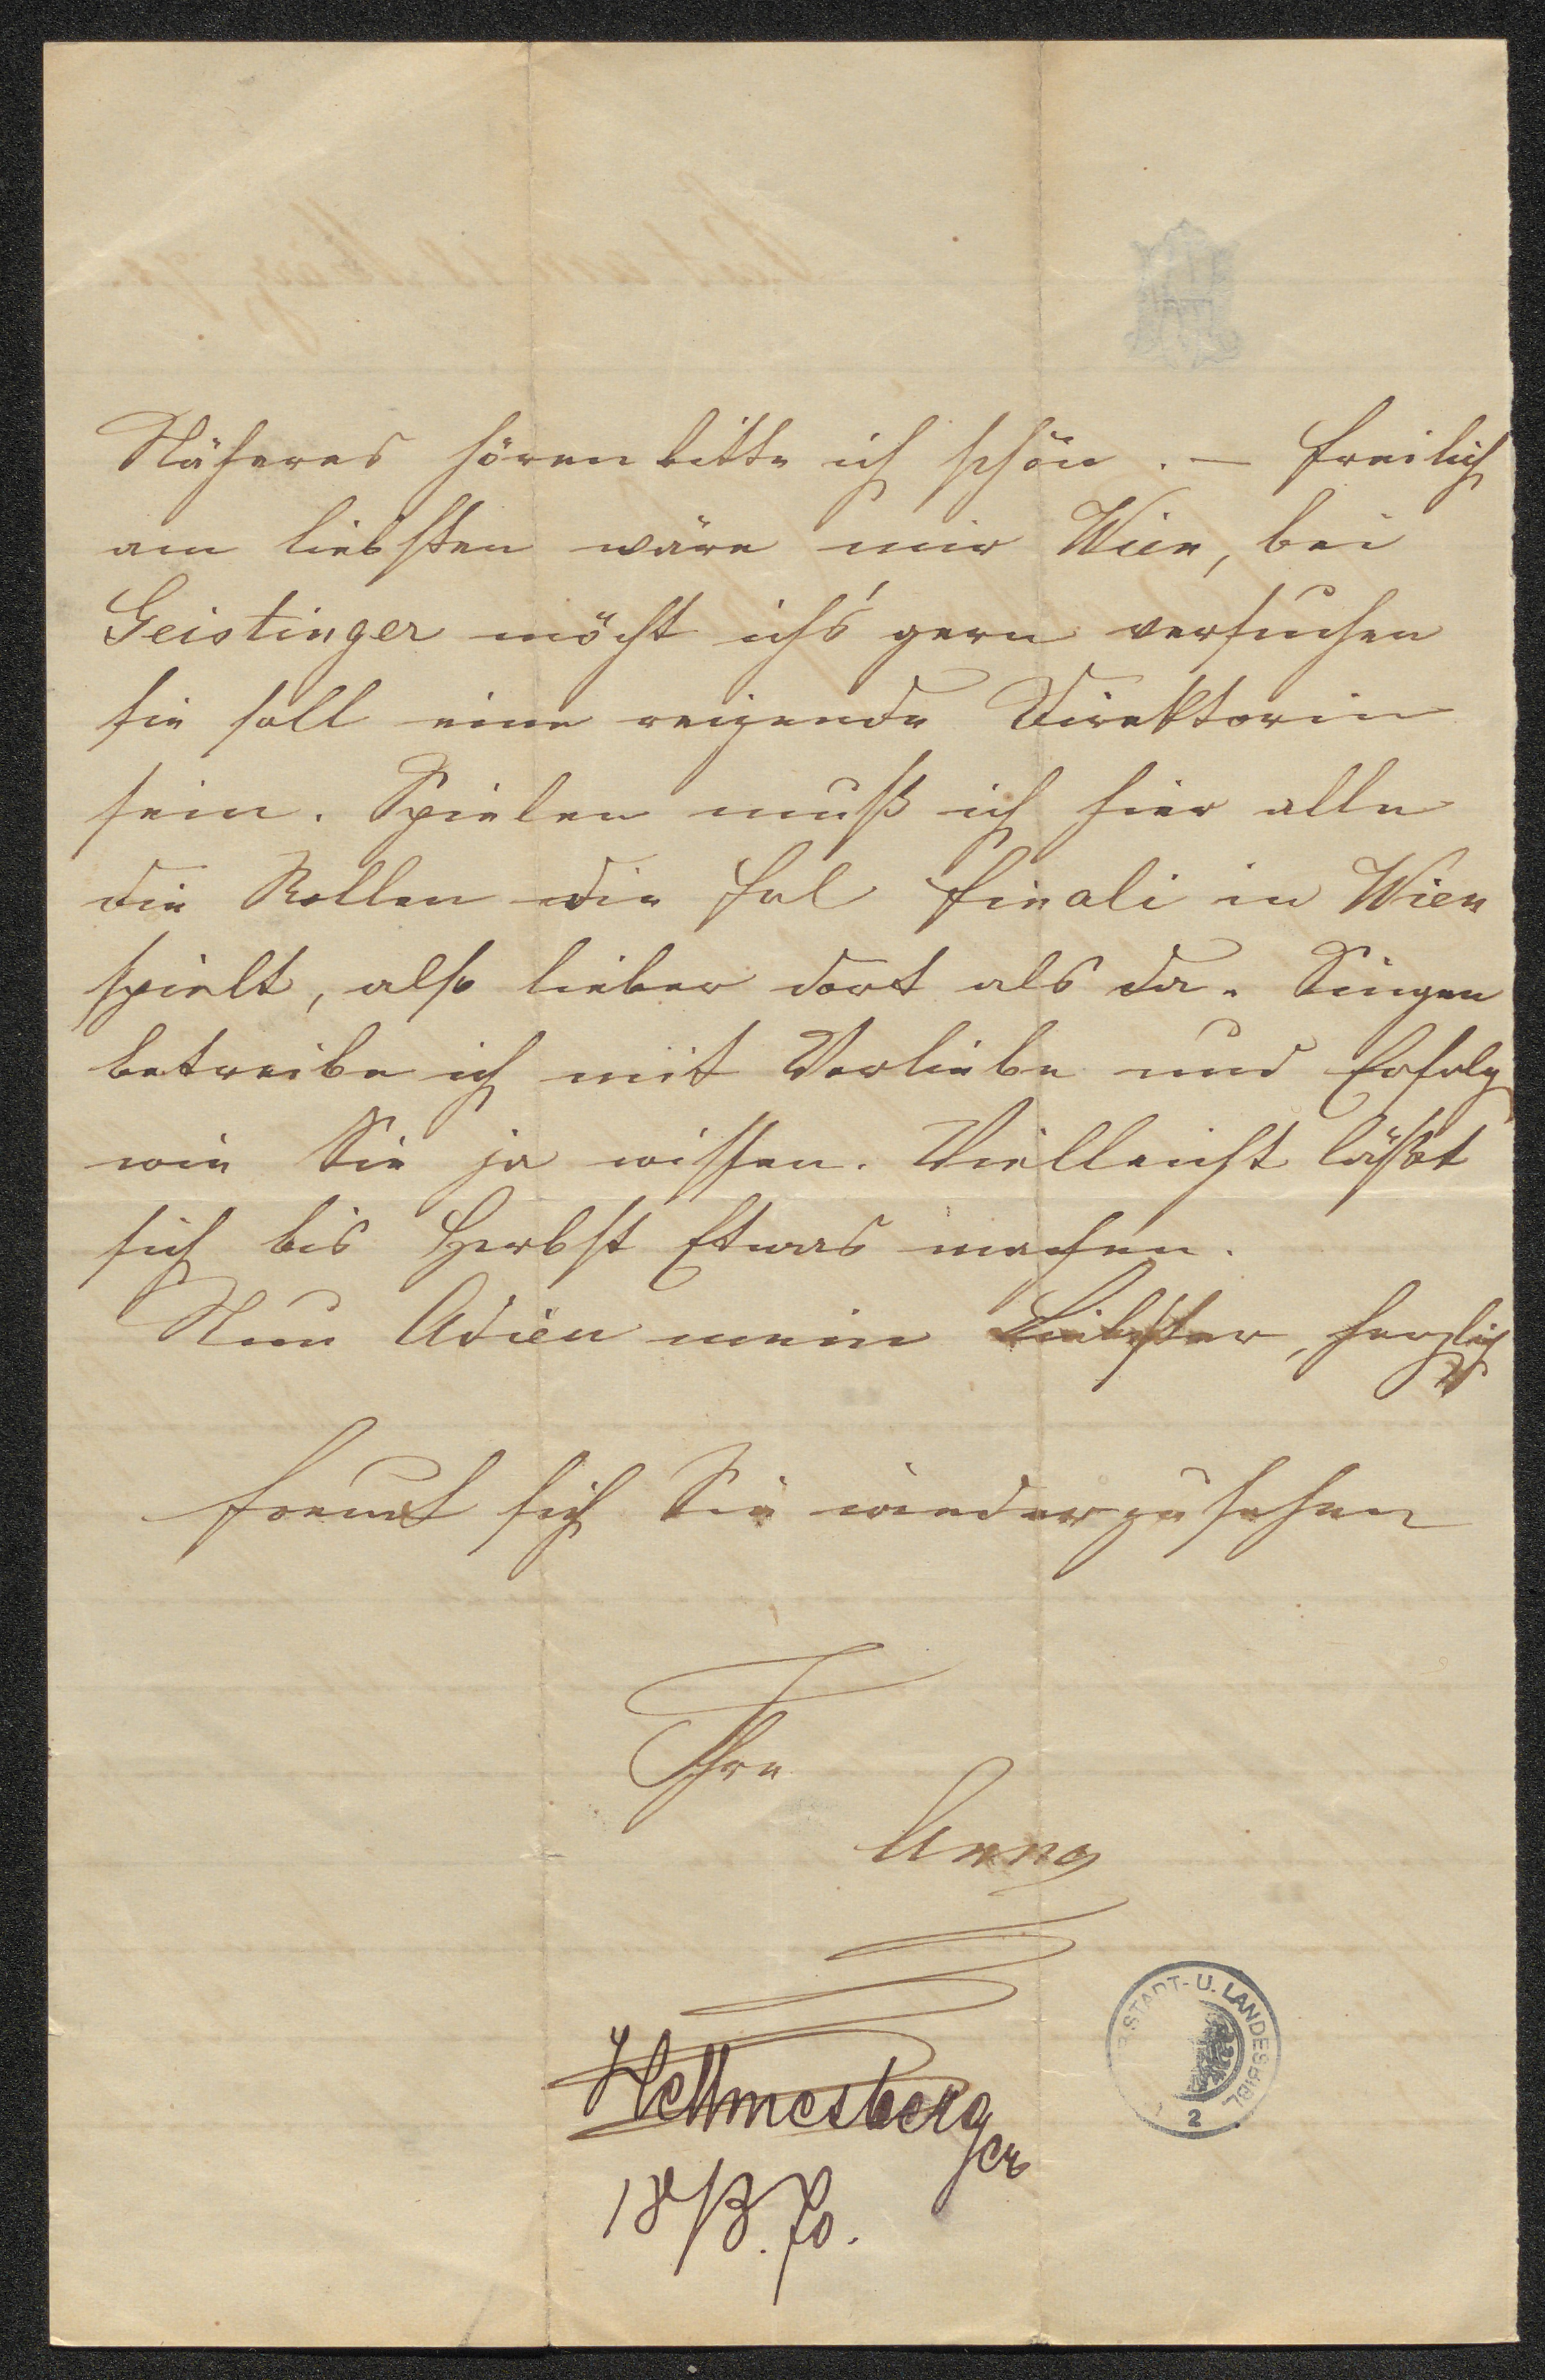 Näheres hören bitte ich schön. — Freilich
am liebsten wäre mir Wien, bei
Geistinger möcht ich's gern versuchen
sie soll eine reizende Direktorin
sein. Spielen muß ich hier alle
die Rollen die Frl Finali in Wien
spielt, also lieber dort als da. Singen
betreibe ich mit Vorliebe und Erfolg
wie Sie ja wissen. Vielleicht läßt
sich bis Herbst Etwas machen.
Nun Adieu mein Liebster, herzlich
freut sich Sie wiederzusehen
Ihre
Anna
Hellmesberger
18/3.70.
STADT- U. LANDESBIBL
2